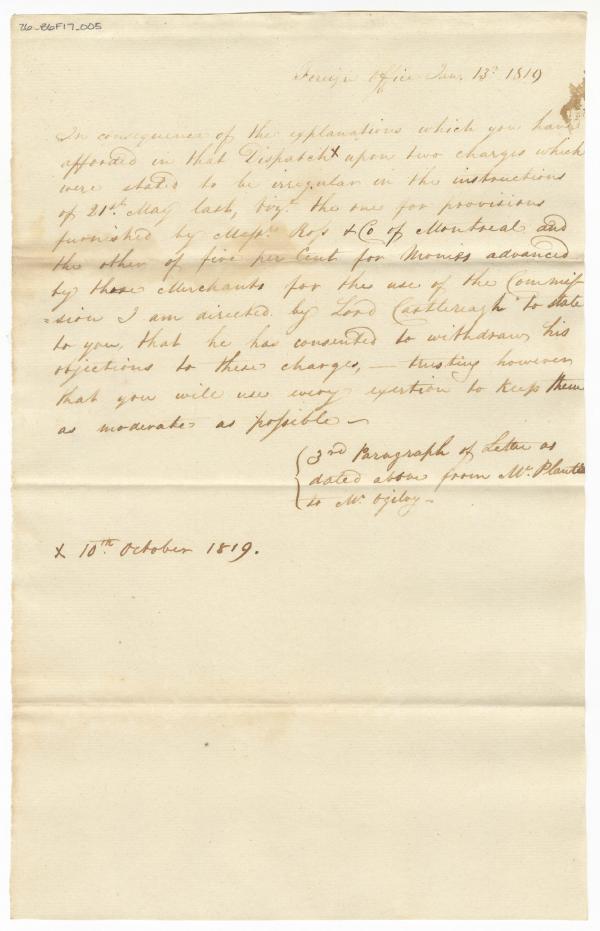 76-86F17-005
Foreign Office Jan. 13th 1819
In consequence of the explanations which you have
afforded in that Dispatch x upon two charges which
were stated to be irregular in the instructions
of 21st May last, vizt. the one for provisions
furnished by Messrs. Ross & Co of Montreal and
the other of five per Cent for Monies advanced
by those Merchants for the use of the Commis
=sion I am directed by Lord Castlereagh to state
to you, that he has consented to withdraw his
objections to these charges, — trusting however
that you will use every exertion to keep them
as moderate as possible —
3rd Paragraph of Letter as
dated above from Mr. Planta
to Mr. Ogilvy —
x 10th October 1819.